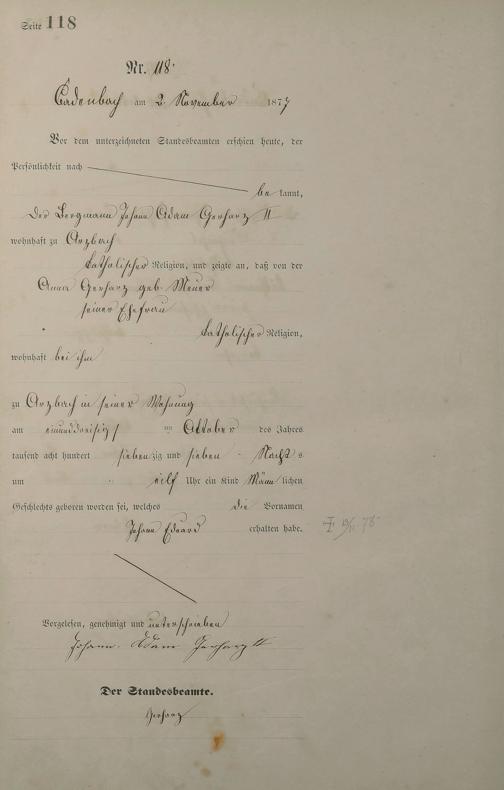 Seite 118
Nr. 118.
Cadenbach am 2 November 1877
Vor dem unterzeichneten Standesbeamten erschien heute, der
Persönlichkeit nach
be kannt,
der Bergmann Johann Adam Gerharz II
wohnhaft zu Arzbach
katholischer Religion, und zeigte an, daß von der
Anna Gerharz geb. Meuer
seiner Ehefrau
katholischer Religion,
wohnhaft bei ihm
zu Arzbach in seiner Wohnung
am einunddreißigs ten Oktober des Jahres
tausend acht hundert sieben zig und sieben Nachts
um eilf Uhr ein Kind Männ lichen
Geschlechts geboren worden sei, welches die Vornamen
Johann Eduard erhalten habe.
Vorgelesen, genehmigt und unterschrieben
Johann Adam Gerharz II
Der Standesbeamte.
Gerharz